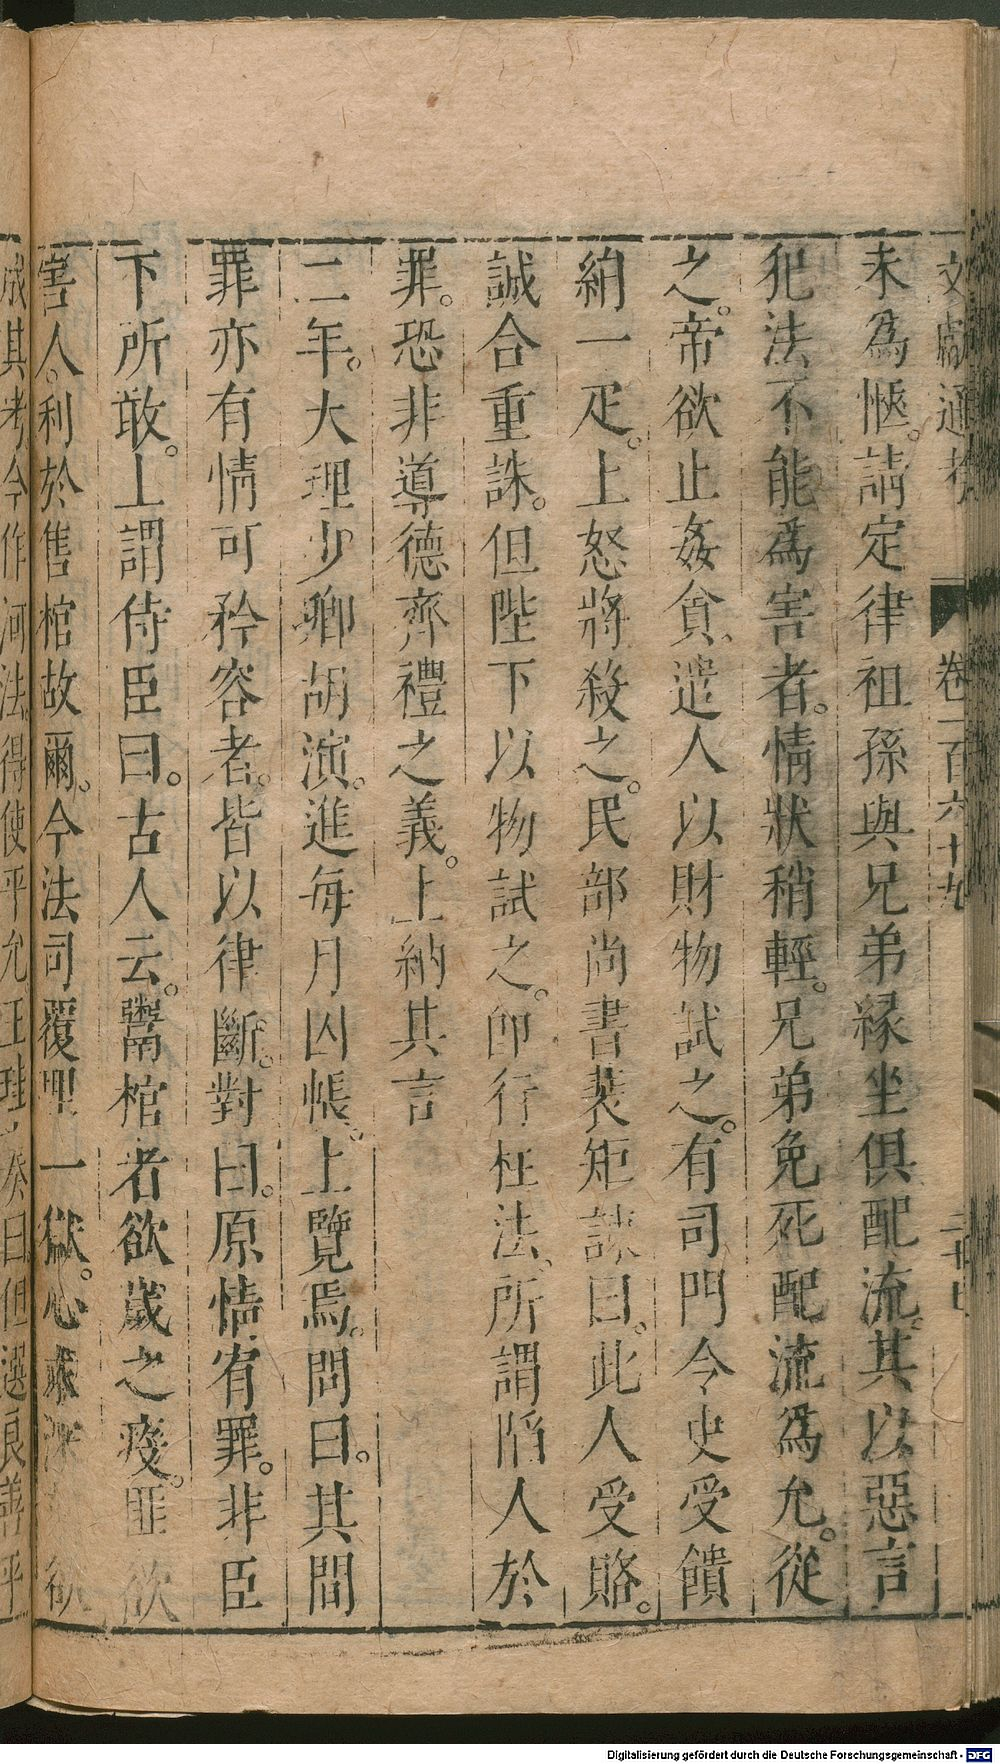 文獻通考 卷一百六十九
未爲愜。請定律祖孫與兄弟緣坐俱配流。其以惡言
犯法不能爲害者。情狀稍輕。兄弟免死配流爲允。從
之。帝欲止姦貪、遣人以財物試之。有司門令史受饋
絹一疋。上怒將殺之。民部尚書裴矩諫曰。此人受賂。
誠合重誅。但陛下以物試之。卽行枉法、所謂陷人於
罪。恐非導德齊禮之義。上納其言
二年。大理少卿胡演。進每月囚帳。上覽焉。問曰。其間
罪亦有情可矜容者。皆以律斷。對曰。原情宥罪。非臣
下所敢。上謂侍臣曰。古人云。鬻棺者欲歲之疫。匪欲
害人。利於售棺故爾。今法司覆理一獄。心求深 欲
成其考今作河法。得使平允王珪奏曰但選良善平
Digitalisierung gefördert durch die Deutsche Forschungsgemeinschaft - DFG